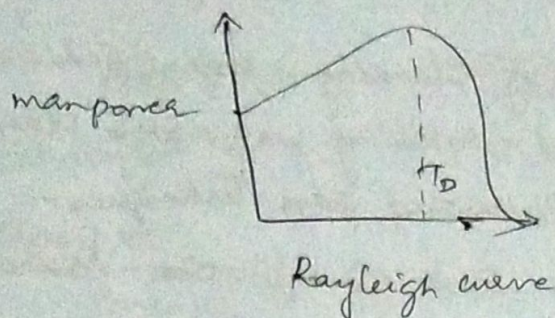 manpower
T_D
Rayleigh curve